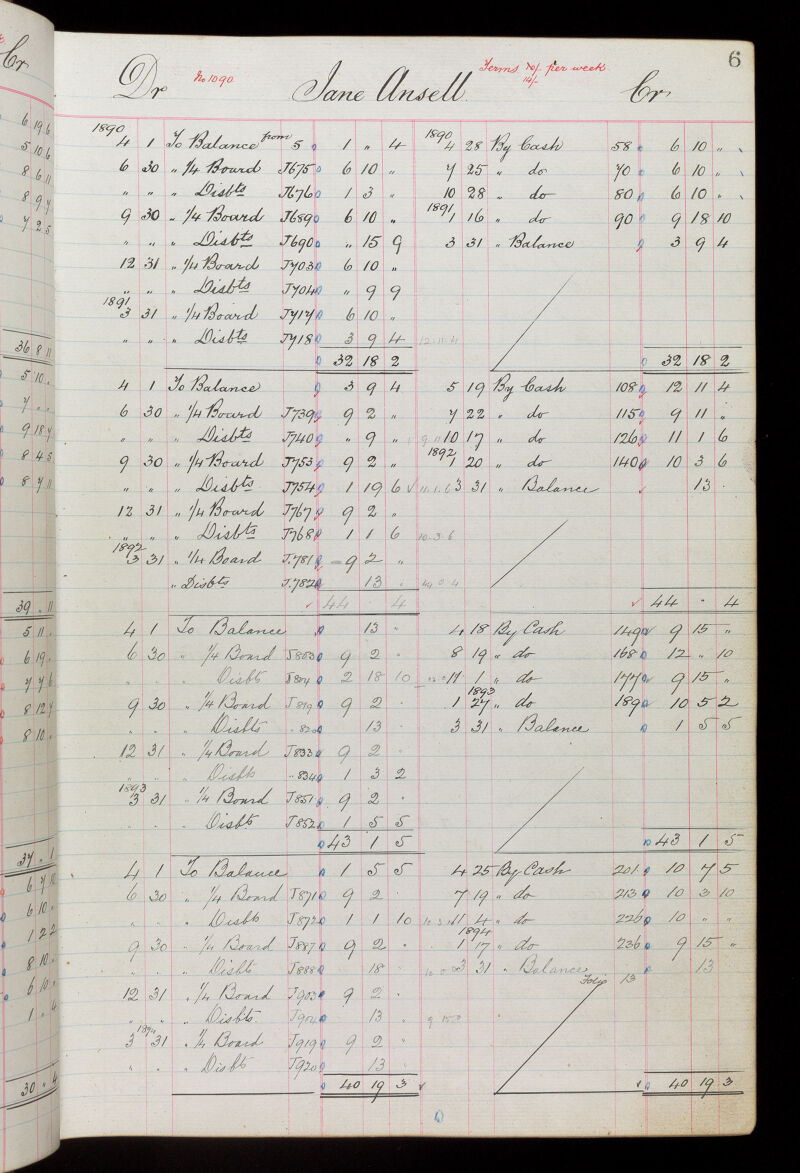 Cr
6 19 6
5 10 6
8 6 11
8 9 7
7 2 5
36 8 11
5 10 "
7 " "
9 18 7
8 4 5
8 7 11
39 " 11
5 11 "
6 19 "
7 7 6
8 12 7
8 10 "
37 " 1
6 10 "
1 2 2
8 10 "
6 10 "
30 " 4
6
Dr No 1090 Jane Ansell Terms 10/- per week Cr
14/-
1890 4 1 To Balance from 5 1 " 4 1890 4 28 By Cash 58 6 10 "
6 30 " 1/4 Board J675 6 10 " 7 25 " do 70 6 10 "
" " " Disbts J676 1 3 " 10 28 " do 80 6 10 "
9 30 " 1/4 Board J689 6 10 " 1891 1 16 " do 90 9 18 10
" " " Disbts J690 " 15 9 3 31 " Balance 3 9 4
12 31 " 1/4 Board J703 6 10 "
" " " Disbts J704 " 9 9
1891 3 31 " 1/4 Board J717 6 10 "
" " " Disbts J718 3 9 4 12.11.4
32 18 2 32 18 2
4 1 To Balance 3 9 4 5 19 By Cash 108 12 11 4
6 30 " 1/4 Board J739 9 2 " 7 22 " do 115 9 11 "
" " " Disbts J740 " 9 " 9 11 10 17 " do 126 11 1 6
9 30 " 1/4 Board J753 9 2 " 1892 1 20 " do 140 10 3 6
" " " Disbts J754 1 19 6 11.1.6 3 31 " Balance 13 "
12 31 " 1/4 Board J767 9 2 "
" " " Disbts J768 1 1 6 10.3.6
1892 3 31 " 1/4 Board J.781 9 2 "
" Disbts J.782 13 " 44 0 4
44 4 44 " 4
4 1 To Balance 13 " 4 18 By Cash 149 9 15 "
6 30 " 1/4 Board J803 9 2 " 8 19 " do 168 12 " 10
" " " Disbts J804 2 18 10 11 1 " do 177 9 15 "
9 30 " 1/4 Board J819 9 2 " 1893 1 27 " do 189 10 5 2
" " " Disbts " 820 13 " 3 31 " Balance 1 5 5
12 31 " 1/4 Board J833 9 2 "
" " " Disbts " 834 1 3 2
1893 3 31 " 1/4 Board J851 9 2 "
" " " Disbts J852 1 5 5
43 1 5 43 1 5
4 1 To Balance 1 5 5 4 25 By Cash 201 10 7 5
6 30 " 1/4 Board J871 9 2 " 7 19 " do 213 10 3 10
" " " Disbts J872 1 1 10 11 4 " do 226 10 " "
9 30 " 1/4 Board J887 9 2 " 1894 1 17 " do 236 9 15 "
" " " Disbts J888 18 " 3 31 " Balance 13
Folio 13
12 31 " 1/4 Board J903 9 2 "
" " " Disbts J904 13 " 9 15 "
1894 3 31 " 1/4 Board J919 9 2 "
" " " Disbts J920 13 "
40 19 3 40 19 3